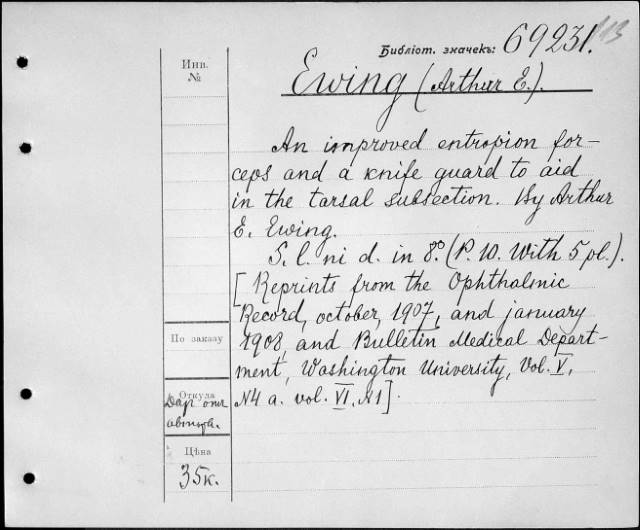 Библіот. значекъ: 69231.
113
Инв. №
Ewing (Arthur E.).
An improved entropion for-
ceps and a knife guard to aid
in the tarsal subsection. By Arthur
E. Ewing.
S. l. ni d. in 8º. (P. 10. With 5 pl.).
[Reprints from the Ophthalmic
Record, october, 1907, and january
1908, and Bulletin Medical Depart-
ment, Washington University, Vol. V,
N4 a. vol. VI, N1].
По заказу
Откуда
Даръ отъ
автора.
Цѣна
35к.